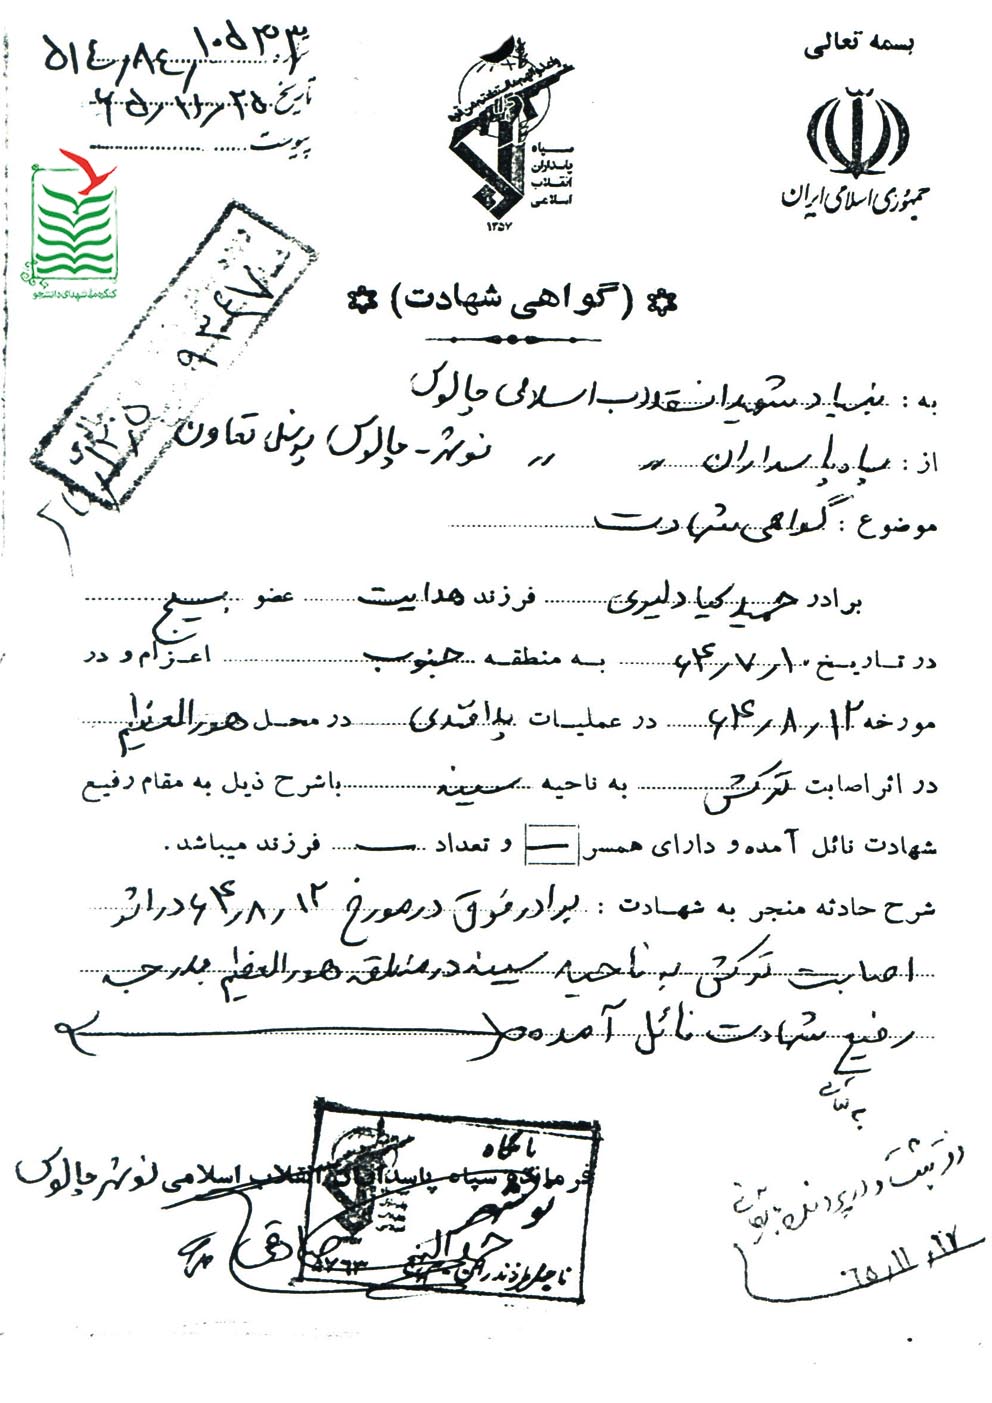 بسمه تعالی
جمهوری اسلامی ایران
سپاه
پاسداران
انقلاب
اسلامی
۱۳۵۷
تاریخ ۶۵/۱۱/۲۵
پیوست
کنگره ملی شهدای دانشجو
(گواهی شهادت)
به : بنیاد شهید انقلاب اسلامی چالوس
از : سپاه پاسداران " " نوشهر - چالوس پرسنلی تعاون
موضوع : گواهی شهادت
برادر حمید کیا دلیری فرزند هدایت عضو بسیج
در تاریخ ۶۴/۷/۱۰ به منطقه جنوب اعزام و در
مورخه ۶۴/۸/۱۲ در عملیات پدافندی در محل هورالعظیم
در اثر اصابت ترکش به ناحیه سینه باشرح ذیل به مقام رفیع
شهادت نائل آمده و دارای همسر — و تعداد — فرزند میباشد.
شرح حادثه منجر به شهادت : برادر فوق در مورخ ۶۴/۸/۱۲ در اثر
اصابت ترکش به ناحیه سینه در منطقه هورالعظیم بدرجه
رفیع شهادت نائل آمده
فرمانده سپاه پاسداران انقلاب اسلامی نوشهر چالوس
نوشهر
صادقی